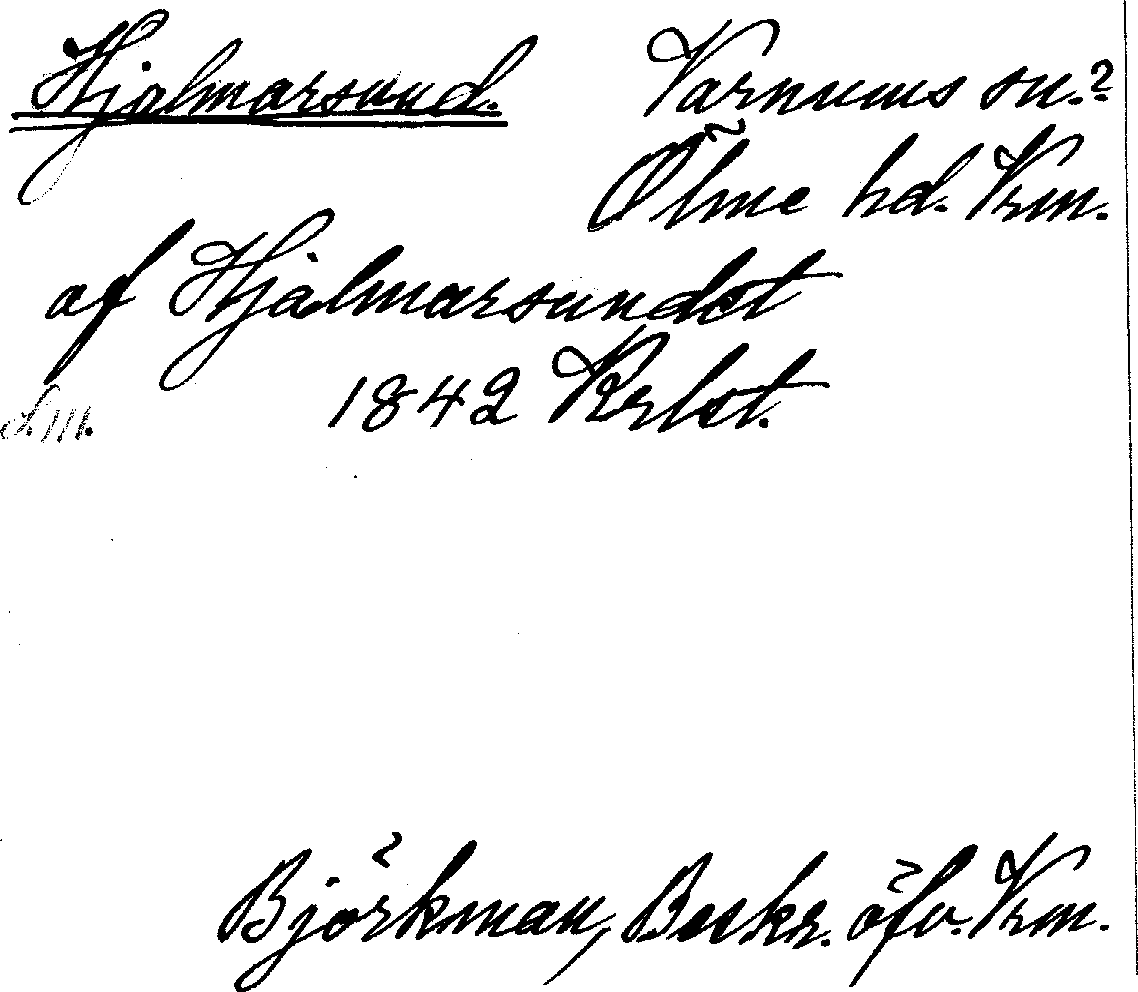 Hjalmarsund. Varnums sn.?
Ölme hd. Vrm.
af Hjalmarsundet
1842 Krlst.
Björkman, Beskr. öfv. Vrm.